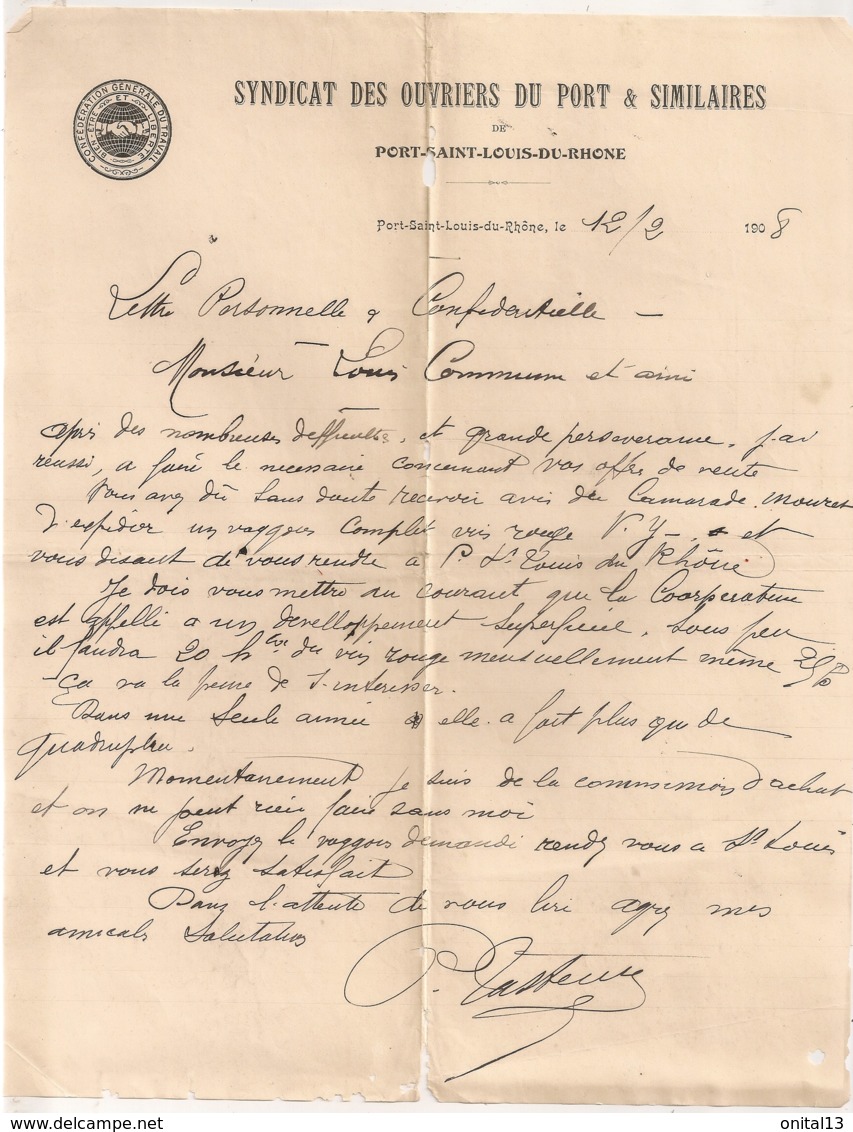 CONFÉDÉRATION GÉNÉRALE DU TRAVAIL
BIEN-ÊTRE ET LIBERTÉ
SYNDICAT DES OUVRIERS DU PORT & SIMILAIRES
DE
PORT-SAINT-LOUIS-DU-RHONE
Port-Saint-Louis-du-Rhône, le 12/2 1908
Lettre Personnelle & Confidentielle —
Monsieur Louis Commune et ami
après des nombreuses difficultés, et grande perseverance, j'ai
réussi, a faire le necessaire concernant vos offres de vente
Vous avez dû sans doute recevoir avis du Camarade Mouret
d'expédier un waggon complet vin rouge V. Y — et
vous disant de vous rendre a P. St Louis du Rhône
Je dois vous mettre au courant que la Coorperature
est appellé a un develloppement Superficiel, sous peu
il faudra 20 h du vin rouge mensuellement même 25
ça va la peine de s'interesser.
Dans une seule année elle a fait plus que de
quadrupler.
Momentanement je suis de la commission d'achat
et on ne peut rien faire sans moi
Envoyez le waggon demandé rendez vous a St Louis
et vous serez satisfait
Dans l'attente de vous lire agrez mes
amicals Salutations
P.
onital13